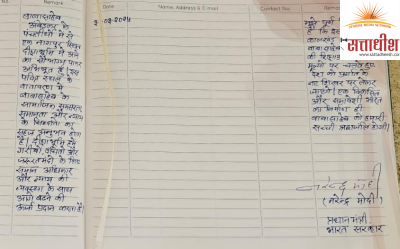 Remark
Date
Name, Address & E.mail
Remark
सत्ताधीश
www.sattadheesh.com
बाबासाहेब
अंबेडकर के
पंचतीर्थों में से
एक नागपुर स्थित
दीक्षाभूमि में आने
का सौभाग्य पाकर
अभिभूत हूं। इस
पवित्र स्थान के
वातावरण में
बाबासाहेब के
सामाजिक समरसता,
समानता और न्याय
के सिद्धांतों का
सहज अनुभव होता
है। दीक्षाभूमि हमें
गरीबों, वंचितों और
जरूरतमंदों के लिए
समान अधिकार
और न्याय की
व्यवस्था के साथ
आगे बढ़ने की
ऊर्जा प्रदान करती है।
मुझे पूर्ण
है कि इस
कालखंड
बाबासाहेब
की शिक्षाओं
मूल्यों पर चलते हुए
देश को प्रगति के
नए शिखर पर लेकर
जाएंगे। एक विकसित
और समावेशी भारत
का निर्माण ही
बाबासाहेब को हमारी
सच्ची श्रद्धांजलि होगी।
नरेन्द्र मोदी
(नरेन्द्र मोदी)
प्रधानमंत्री
भारत सरकार